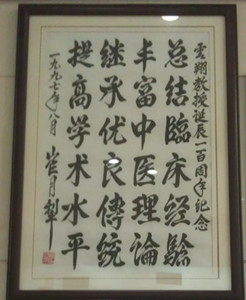 云翔教授诞辰一百周年记念
总结临床经验
丰富中医理论
继承优良傳统
提高学术水平
一九九七年八月
崔月犁